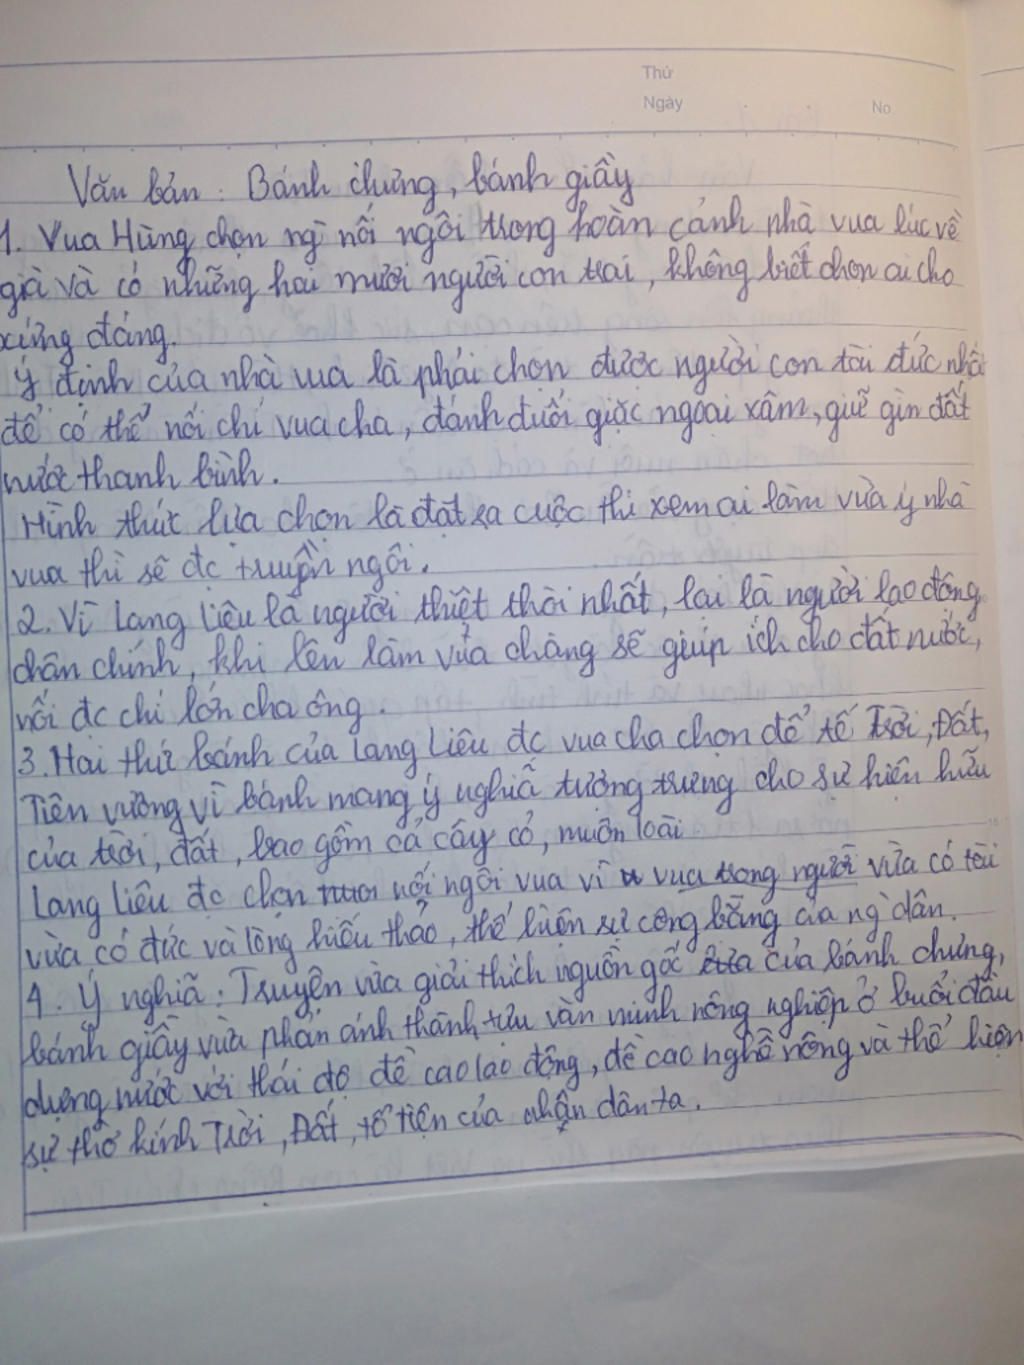 Thứ
Ngày
No
Văn bản : Bánh chưng, bánh giầy
1. Vua Hùng chọn ng` nối ngôi trong hoàn cảnh nhà vua lúc về
già và có những hai mươi người con trai, không biết chọn ai cho
xứng đáng.
Ý định của nhà vua là phải chọn được người con tài đức nhất
để có thể nối chí vua cha, đánh đuổi giặc ngoại xâm, giữ gìn đất
nước thanh bình.
Hình thức lựa chọn là đặt ra cuộc thi xem ai làm vừa ý nhà
vua thì sẽ đc truyền ngôi.
2. Vì Lang Liêu là người thiệt thòi nhất, lại là người lao động
chân chính, khi lên làm vua chàng sẽ giúp ích cho đất nước,
nối đc chí lớn cha ông.
3. Hai thứ bánh của Lang Liêu đc vua cha chọn để tế Trời, Đất,
Tiên vương vì bánh mang ý nghĩa tượng trưng cho sự hiện hữu
của trời, đất, bao gồm cả cây cỏ, muôn loài.
Lang Liêu đc chọn nối ngôi vua vì vua trong người vừa có tài
vừa có đức và lòng hiếu thảo, thể hiện sự công bằng của ng` dân.
4. Ý nghĩa : Truyện vừa giải thích nguồn gốc của bánh chưng,
bánh giầy vừa phản ánh thành tựu văn minh nông nghiệp ở buổi đầu
dựng nước với thái độ đề cao lao động, đề cao nghề nông và thể hiện
sự thờ kính Trời, Đất, tổ tiên của nhân dân ta.